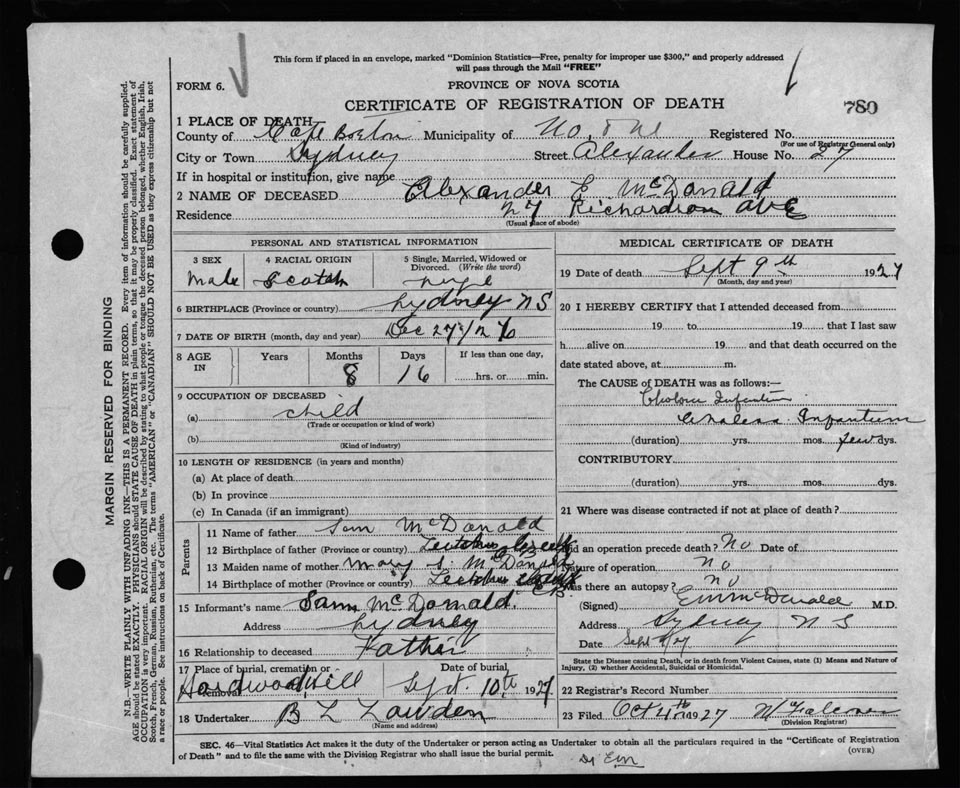 This form if placed in an envelope, marked "Dominion Statistics—Free, penalty for improper use $300," and properly addressed
will pass through the Mail "FREE"
FORM 6.
PROVINCE OF NOVA SCOTIA
CERTIFICATE OF REGISTRATION OF DEATH
780
1 PLACE OF DEATH
County of Cape Breton Municipality of No, One Registered No.
(For use of Registrar General only)
City or Town Sydney Street Alexander House No. 27
If in hospital or institution, give name
2 NAME OF DECEASED Alexander E McDonald
Residence 27 Richardson AVE
(Usual place of abode)
PERSONAL AND STATISTICAL INFORMATION
3 SEX
Male
4 RACIAL ORIGIN
Scotch
5 Single, Married, Widowed or
Divorced. (Write the word)
6 BIRTHPLACE (Province or country) Sydney N S
7 DATE OF BIRTH (month, day and year) Dec 27/26
8 AGE IN
Years
Months
8
Days
16
If less than one day,
hrs. or min.
9 OCCUPATION OF DECEASED
(a) child
(Trade or occupation or kind of work)
(b)
(Kind of industry)
10 LENGTH OF RESIDENCE (in years and months)
(a) At place of death
(b) In province
(c) In Canada (if an immigrant)
Parents
11 Name of father Sam McDonald
12 Birthplace of father (Province or country) Leitches Creek
13 Maiden name of mother Mary S. McDonald
14 Birthplace of mother (Province or country) Leitches Creek
C.B.
15 Informant's name Sam McDonald.
Address Sydney
16 Relationship to deceased Father
17 Place of burial, cremation or removal
Hardwood Hill
Date of burial
Sept. 10th 1927.
18 Undertaker B L Lowden
(Name and address)
MEDICAL CERTIFICATE OF DEATH
19 Date of death Sept 9th 1927
(Month, day and year)
20 I HEREBY CERTIFY that I attended deceased from
19 to 19 that I last saw
h alive on 19 and that death occurred on the
date stated above, at m.
The CAUSE of DEATH was as follows:—
Cholera Infantum
Cholera Infantum
(duration) yrs. mos. few dys.
CONTRIBUTORY
(duration) yrs. mos. dys.
21 Where was disease contracted if not at place of death?
Did an operation precede death? No Date of
Nature of operation no
Was there an autopsy? no
(Signed) E M McDonald M.D.
Address Sydney N S
Date Sept 9/27
State the Disease causing Death, or in death from Violent Causes, state (1) Means and Nature of
Injury, (2) whether Accidental, Suicidal or Homicidal.
22 Registrar's Record Number
23 Filed Oct 4th 1927 N Falconer
(Division Registrar)
SEC. 46—Vital Statistics Act makes it the duty of the Undertaker or person acting as Undertaker to obtain all the particulars required in the "Certificate of Registration
of Death" and to file the same with the Division Registrar who shall issue the burial permit.
(OVER)
MARGIN RESERVED FOR BINDING
N.B.—WRITE PLAINLY WITH UNFADING INK—THIS IS A PERMANENT RECORD. Every item of information should be carefully supplied.
AGE should be stated EXACTLY. PHYSICIANS should STATE CAUSE OF DEATH in plain terms, so that it may be properly classified. Exact statement of
OCCUPATION is very important. RACIAL ORIGIN will be described by stating to what people or tongue the deceased person belonged, whether English, Irish,
Scotch, French, German, Russian, Ruthenian, etc. The terms "AMERICAN" or "CANADIAN" SHOULD NOT BE USED as they express citizenship but not
a race or people. See instructions on back of certificate.